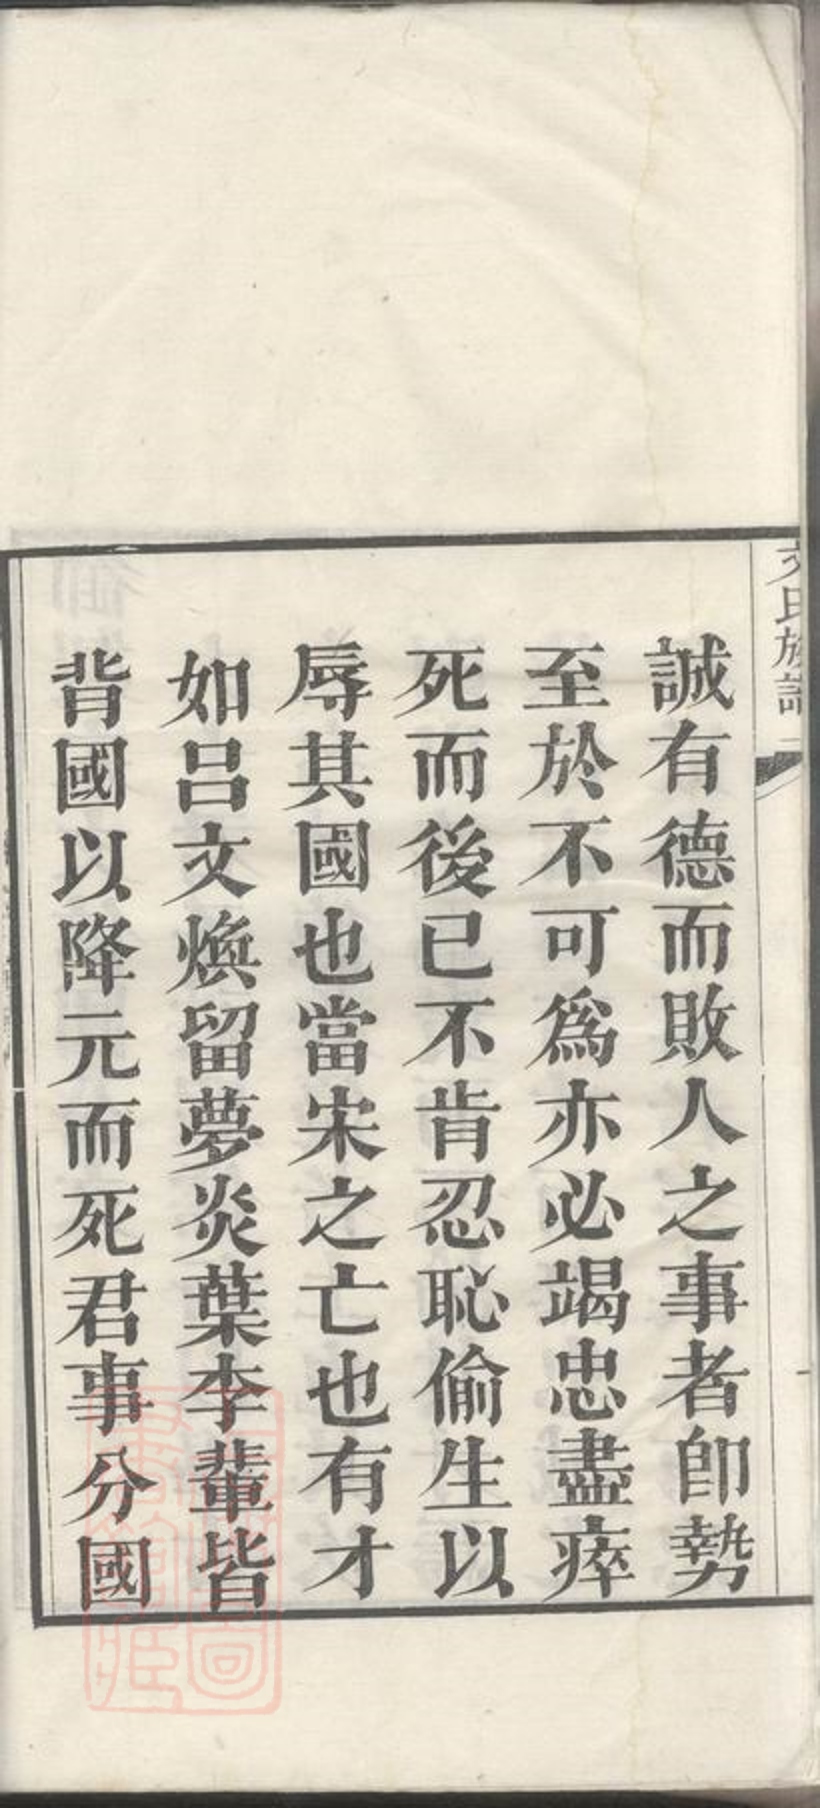 文氏族譜
誠有德而敗人之事者卽勢
至於不可爲亦必竭忠盡瘁
死而後已不肯忍恥偷生以
辱其國也當宋之亡也有才
如呂文煥留夢炎葉李輩皆
背國以降元而死君事分國